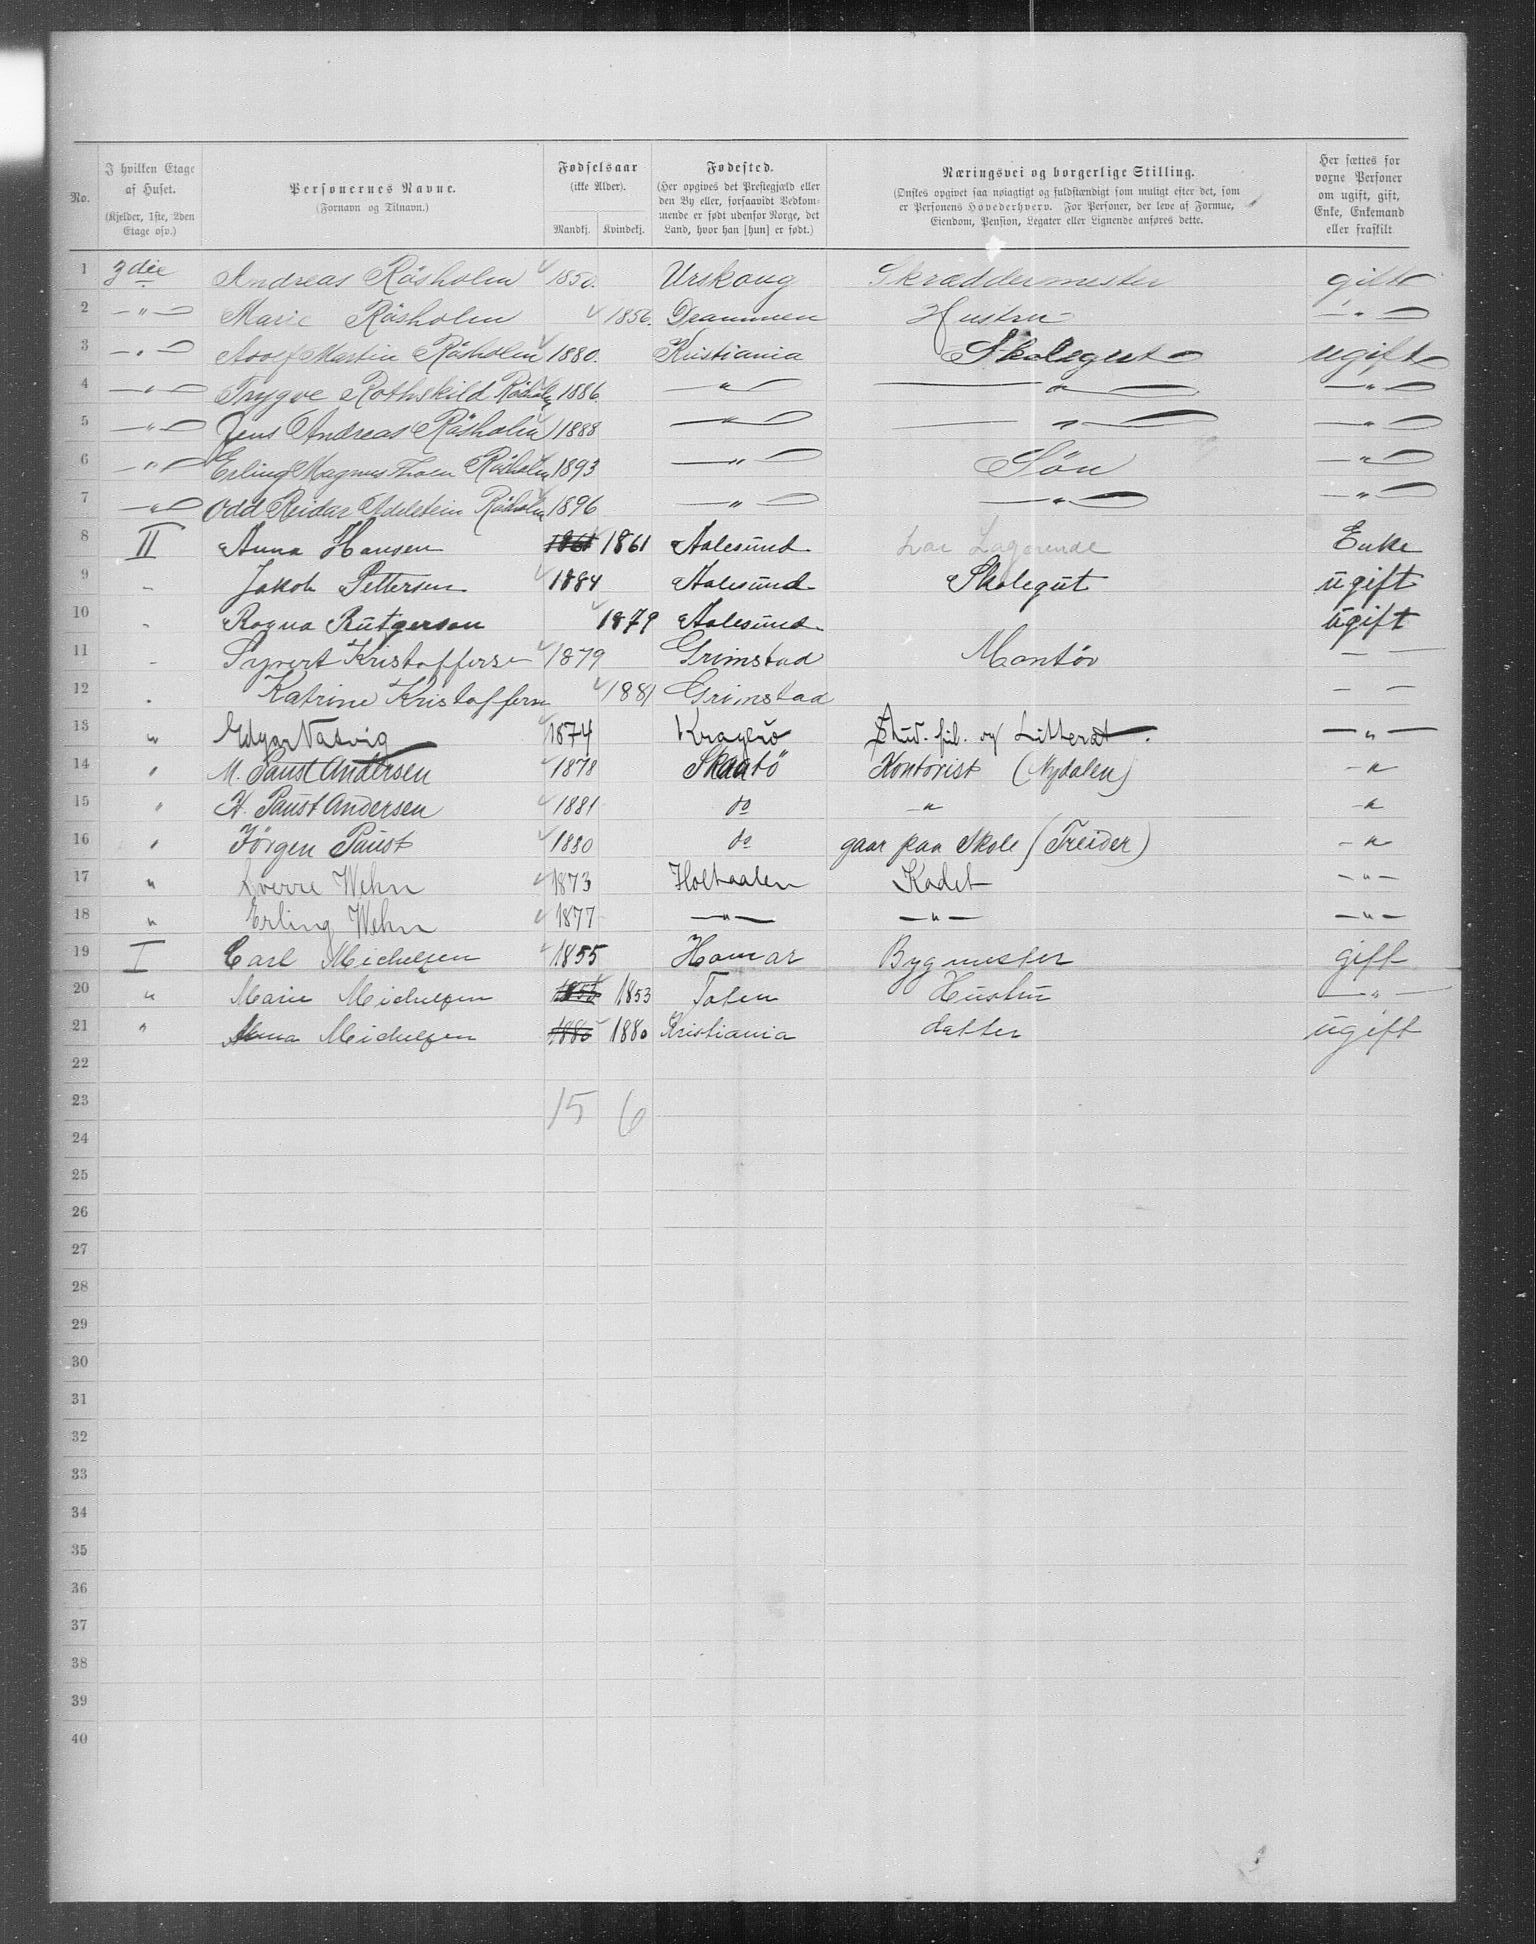 No. | I hvilken Etage af Huset. (Kjelder, 1ste, 2den Etage osv.) | Personernes Navne. (Fornavn og Tilnavn.) | Fødselsaar (ikke Alder). Mandkj. Kvindekj. | Fødested. (Her opgives det Prestegjæld eller den By eller, forsaavidt Vedkommende er født udenfor Norge, det Land, hvor han [hun] er født.) | Næringsvei og borgerlige Stilling. (Ønskes opgivet saa nøiagtigt og fuldstændigt som muligt efter det, som er Personens Hovederhverv. For Personer, der leve af Formue, Eiendom, Pension, Legater eller Lignende anføres dette. | Her sættes for voxne Personer om ugift, gift, Enke, Enkemand eller fraskilt
1 3die Andreas Råsholm 1850. Urskoug Skræddermester gift
2 — " — Marie Råsholm 1856. Drammen Hustru — " —
3 — " — Adolf Martin Råsholm 1880. Kristiania Skolegut ugift
4 — " — Trygve Rothskild Råsholm 1886. — " — — " — — " —
5 — " — Jens Andreas Råsholm 1888 — " — — " — — " —
6 — " — Erling Magnus Råsholm 1893 — " — Søn — " —
7 — " — Odd Reidar Adelstein Råsholm 1896 — " — — " — — " —
8 II Anna Hansen 1861 1861 Aalesund har Logerende Enke
9 - Jakob Pettersen 1884 Aalesund Skolegut ugift
10 - Ragna Rutgersen 1879 Aalesund ugift
11 - Syvert Kristoffersen 1879 Grimstad Montør — —
12 - Katrine Kristoffersen 1881 Grimstad — —
13 " Edgar Natvig 1874 Kragerø Stud. fil. og Litterat. — " —
14 " M. Paust Andersen 1878 Skaatö Kontorist (Nydalen) — " —
15 " H. Paust Andersen 1881 do — " — "
16 " Jörgen Paust 1880 do gaar paa Skole (Treider) — " —
17 " Sverre Wehn 1873 Holtaalen Kadet — " —
18 " Erling Wehn 1877 — " — — " — — " —
19 I Carl Michelsen 1855 Hamar Bygmester gift
20 " Marie Michelsen 1853 1853 Toten Hustru — " —
21 " Anna Michelsen 1880 1880 Kristiania datter ugift
22
23 15 6
24
25
26
27
28
29
30
31
32
33
34
35
36
37
38
39
40